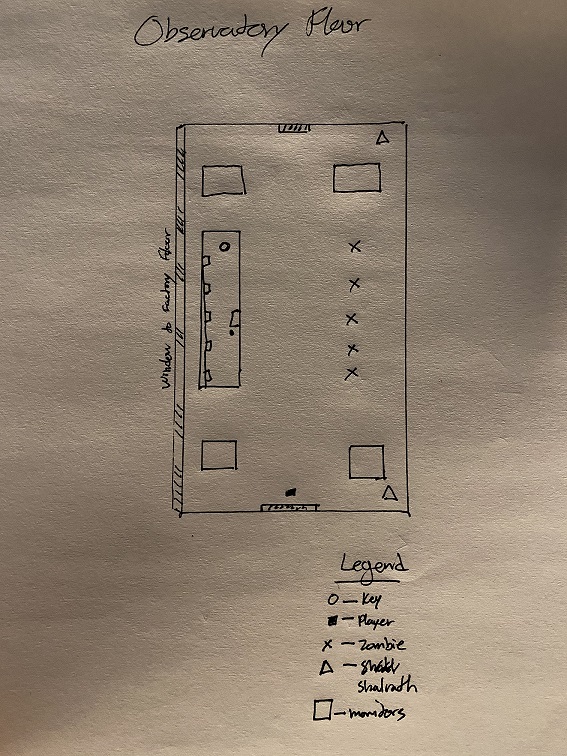 Observatory Floor
Window to Factory Floor
Legend
O — Key
■ — Player
x — Zombie
△ — shalrath
□ — monitors